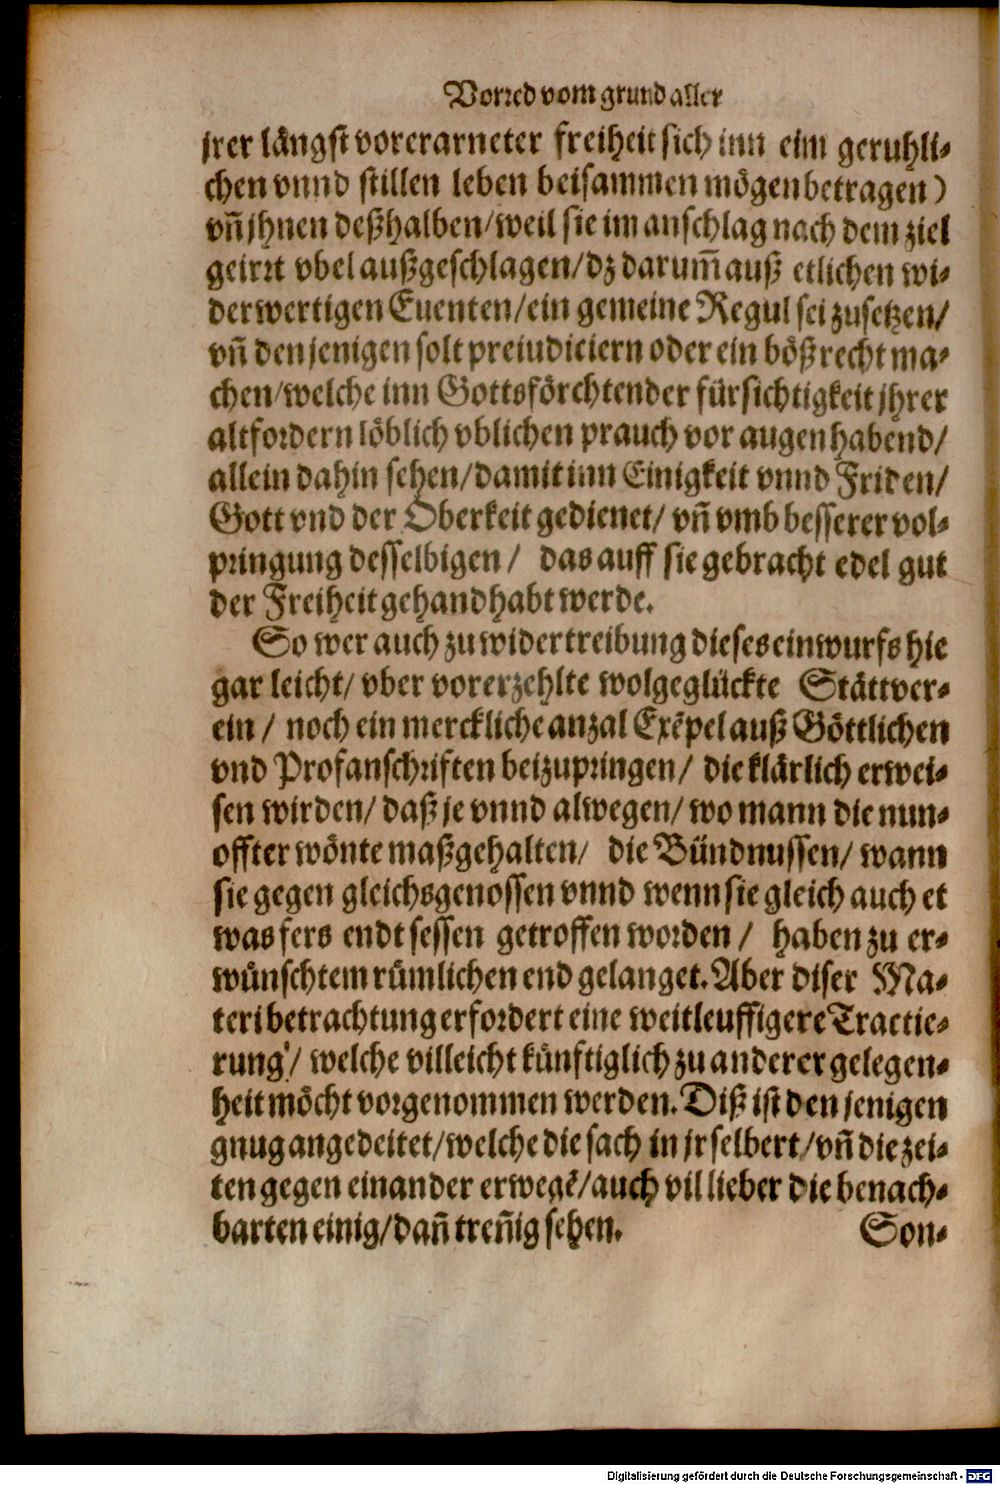 Vorred vom grund aller
jrer längst vorerarneter freiheit sich inn eim geruhli⸗
chen vnnd stillen leben beisammen mögen betragen)
vñ jhnen deßhalben/weil sie im anschlag nach dem ziel
geirrt vbel außgeschlagen/dz darum̃ auß etlichen wi⸗
derwertigen Euenten/ein gemeine Regul sei zusetzen/
vñ den jenigen solt preiudiciern oder ein bößrecht ma⸗
chen/welche inn Gottsförchtender fürsichtigkeit jhrer
altfordern löblich vblichen prauch vor augen habend/
allein dahin sehen/damit inn Einigkeit vnnd Friden/
Gott vnd der Oberkeit gedienet/ vñ vmb besserer vol⸗
pringung desselbigen/ das auff sie gebracht edel gut
der Freiheit gehandhabt werde.
So wer auch zu widertreibung dieses einwurfs hie
gar leicht/ vber vorerzehlte wolgeglückte Stättver⸗
ein/ noch ein merckliche anzal Exẽpel auß Göttlichen
vnd Profanschriften beizupringen/ die klärlich erwei⸗
sen wirden/ daß je vnnd alwegen/ wo mann die nun⸗
offter wönte maßgehalten/ die Bündnussen/ wann
sie gegen gleichsgenossen vnnd wenn sie gleich auch et
was fers endt sessen getroffen worden/ haben zu er⸗
wünschtem rümlichen end gelanget. Aber diser Ma⸗
teri betrachtung erfordert eine weitleuffigere Tractie⸗
rung/ welche villeicht künftiglich zu anderer gelegen⸗
heit möcht vorgenommen werden. Diß ist den jenigen
gnug angedeitet/welche die sach in jr selbert/vñ die zei⸗
ten gegen einander erwegẽ/auch vil lieber die benach⸗
barten einig/dañ treñig sehen.
Son⸗
Digitalisierung gefördert durch die Deutsche Forschungsgemeinschaft - DFG